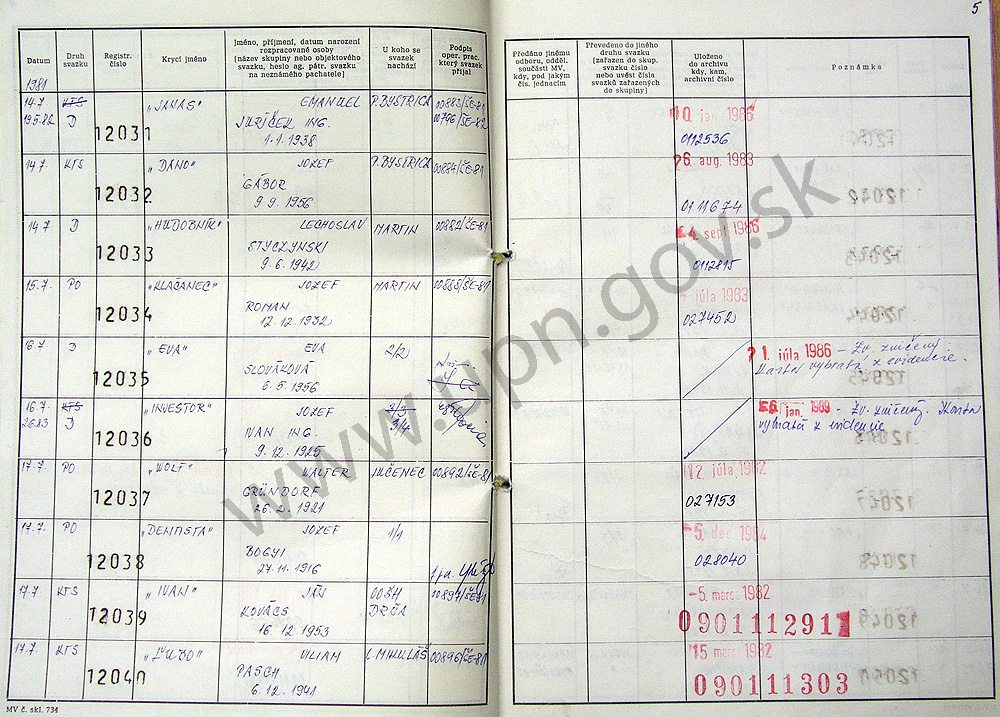 5
Datum
Druh svazku
Registr. číslo
Krycí jméno
Jméno, příjmení, datum narození rozpracované osoby [název skupiny nebo objektového svazku, heslo ag. pátr. svazku na neznámého pachatele]
U koho se svazek nachází
Podpis oper. prac. který svazek přijal
Předáno jinému odboru, odděl. součásti MV, kdy, pod jakým čís. jednacím
Převedeno do jiného druhu svazku (zařazen do skup. svazku číslo nebo uvést čísla svazků zařazených do skupiny]
Uloženo do archivu kdy, kam, archivní číslo
Poznámka
1981
14.7. KTS 12031 „JANAS" EMANUEL P.BYSTRICA 00883/ŠE-81
19.5.82 D JURÍČEK ING. 00796/ŠE-82
1.1.1938
10. jan 1986
0112536
14.7. KTS 12032 „DANO" JOZEF P.BYSTRICA 00884/ŠE-81
GÁBOR
9.9.1956
26. aug. 1983
0111674
14.7 D 12033 „HUDOBNÍK" LECHOSLAV MARTIN 00882/ŠE-81
STYCZYNSKI
9.6.1942
24. sept 1986
0112815
15.7. PO 12034 „KLAČANEC" JOZEF MARTIN 00885/ŠE-81
ROMAN
12.12.1932
júla 1983
027452
16.7 D 12035 „EVA" EVA 2/2
SLOVÁKOVÁ
6.5.1956
21. júla 1986 – Zv. zničený
Karta vybratá z evidencie.
16.7. KTS 12036 „INVESTOR" JOZEF 3/4
2.6.83 D IVAN ING.
9.12.1925
jan. 1989 – Zv. zničený. Karta
vybratá z evidencie
17.7. PO 12037 „WOLF" WALTER LUČENEC 00892/ŠE-81
GRÜNDORF
26.2.1921
12. júla 1982
027153
17.7. PO 12038 „DENTISTA" JOZEF 1/1
BOGYI
27.11.1916
-5. dec 1984
028040
17.7. KTS 12039 „IVAN" JÁN 0034 00894/ŠE-81
KOVÁCS DRŠA
16.12.1953
-5. marc 1982
0901112911
17.7. KTS 12040 „ĽUBO" VILIAM L.MIKULÁŠ 00896/ŠE-81
PASCH
6.12.1941
15 marc 1982
090111303
MV č. skl. 734
www.upn.gov.sk